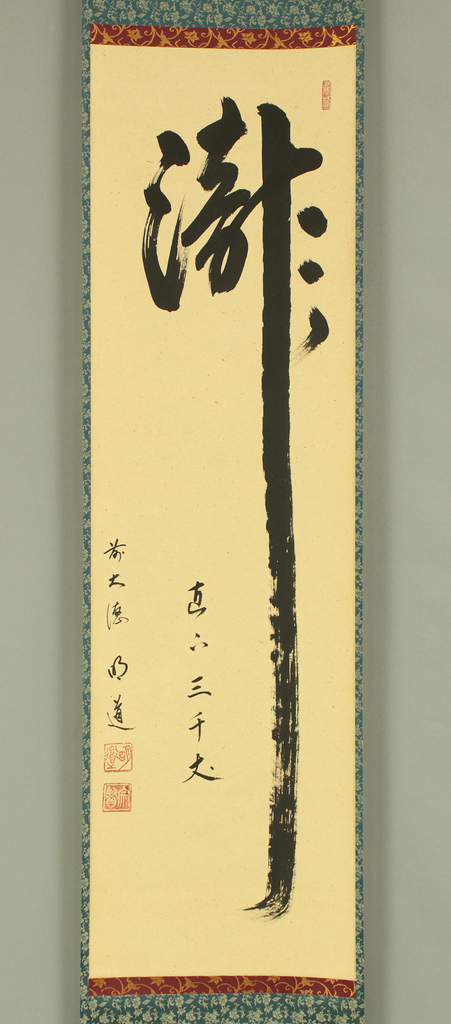 瀧
直下三千丈
前大徳 明道